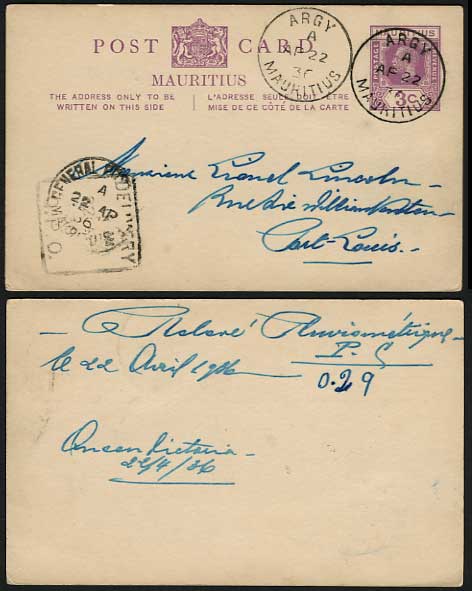 POST CARD
MAURITIUS
THE ADDRESS ONLY TO BE
WRITTEN ON THIS SIDE
L'ADRESSE SEULE DOIT ÊTRE
MISE DE CE CÔTÉ DE LA CARTE
ARGY
A
AP 22
36
MAURITIUS
ARGY
A
AP 22
MAURITIUS
MAURITIUS
POSTAGE
3c
GENERAL
DELIVERY
A
22 AP
36
Monsieur Lionel Lincoln
Rue Sir William Newton
Port-Louis.
Relevé Pluviométrique
P. S
le 22 Avril 1936
0.29
Queen Victoria
22/4/36